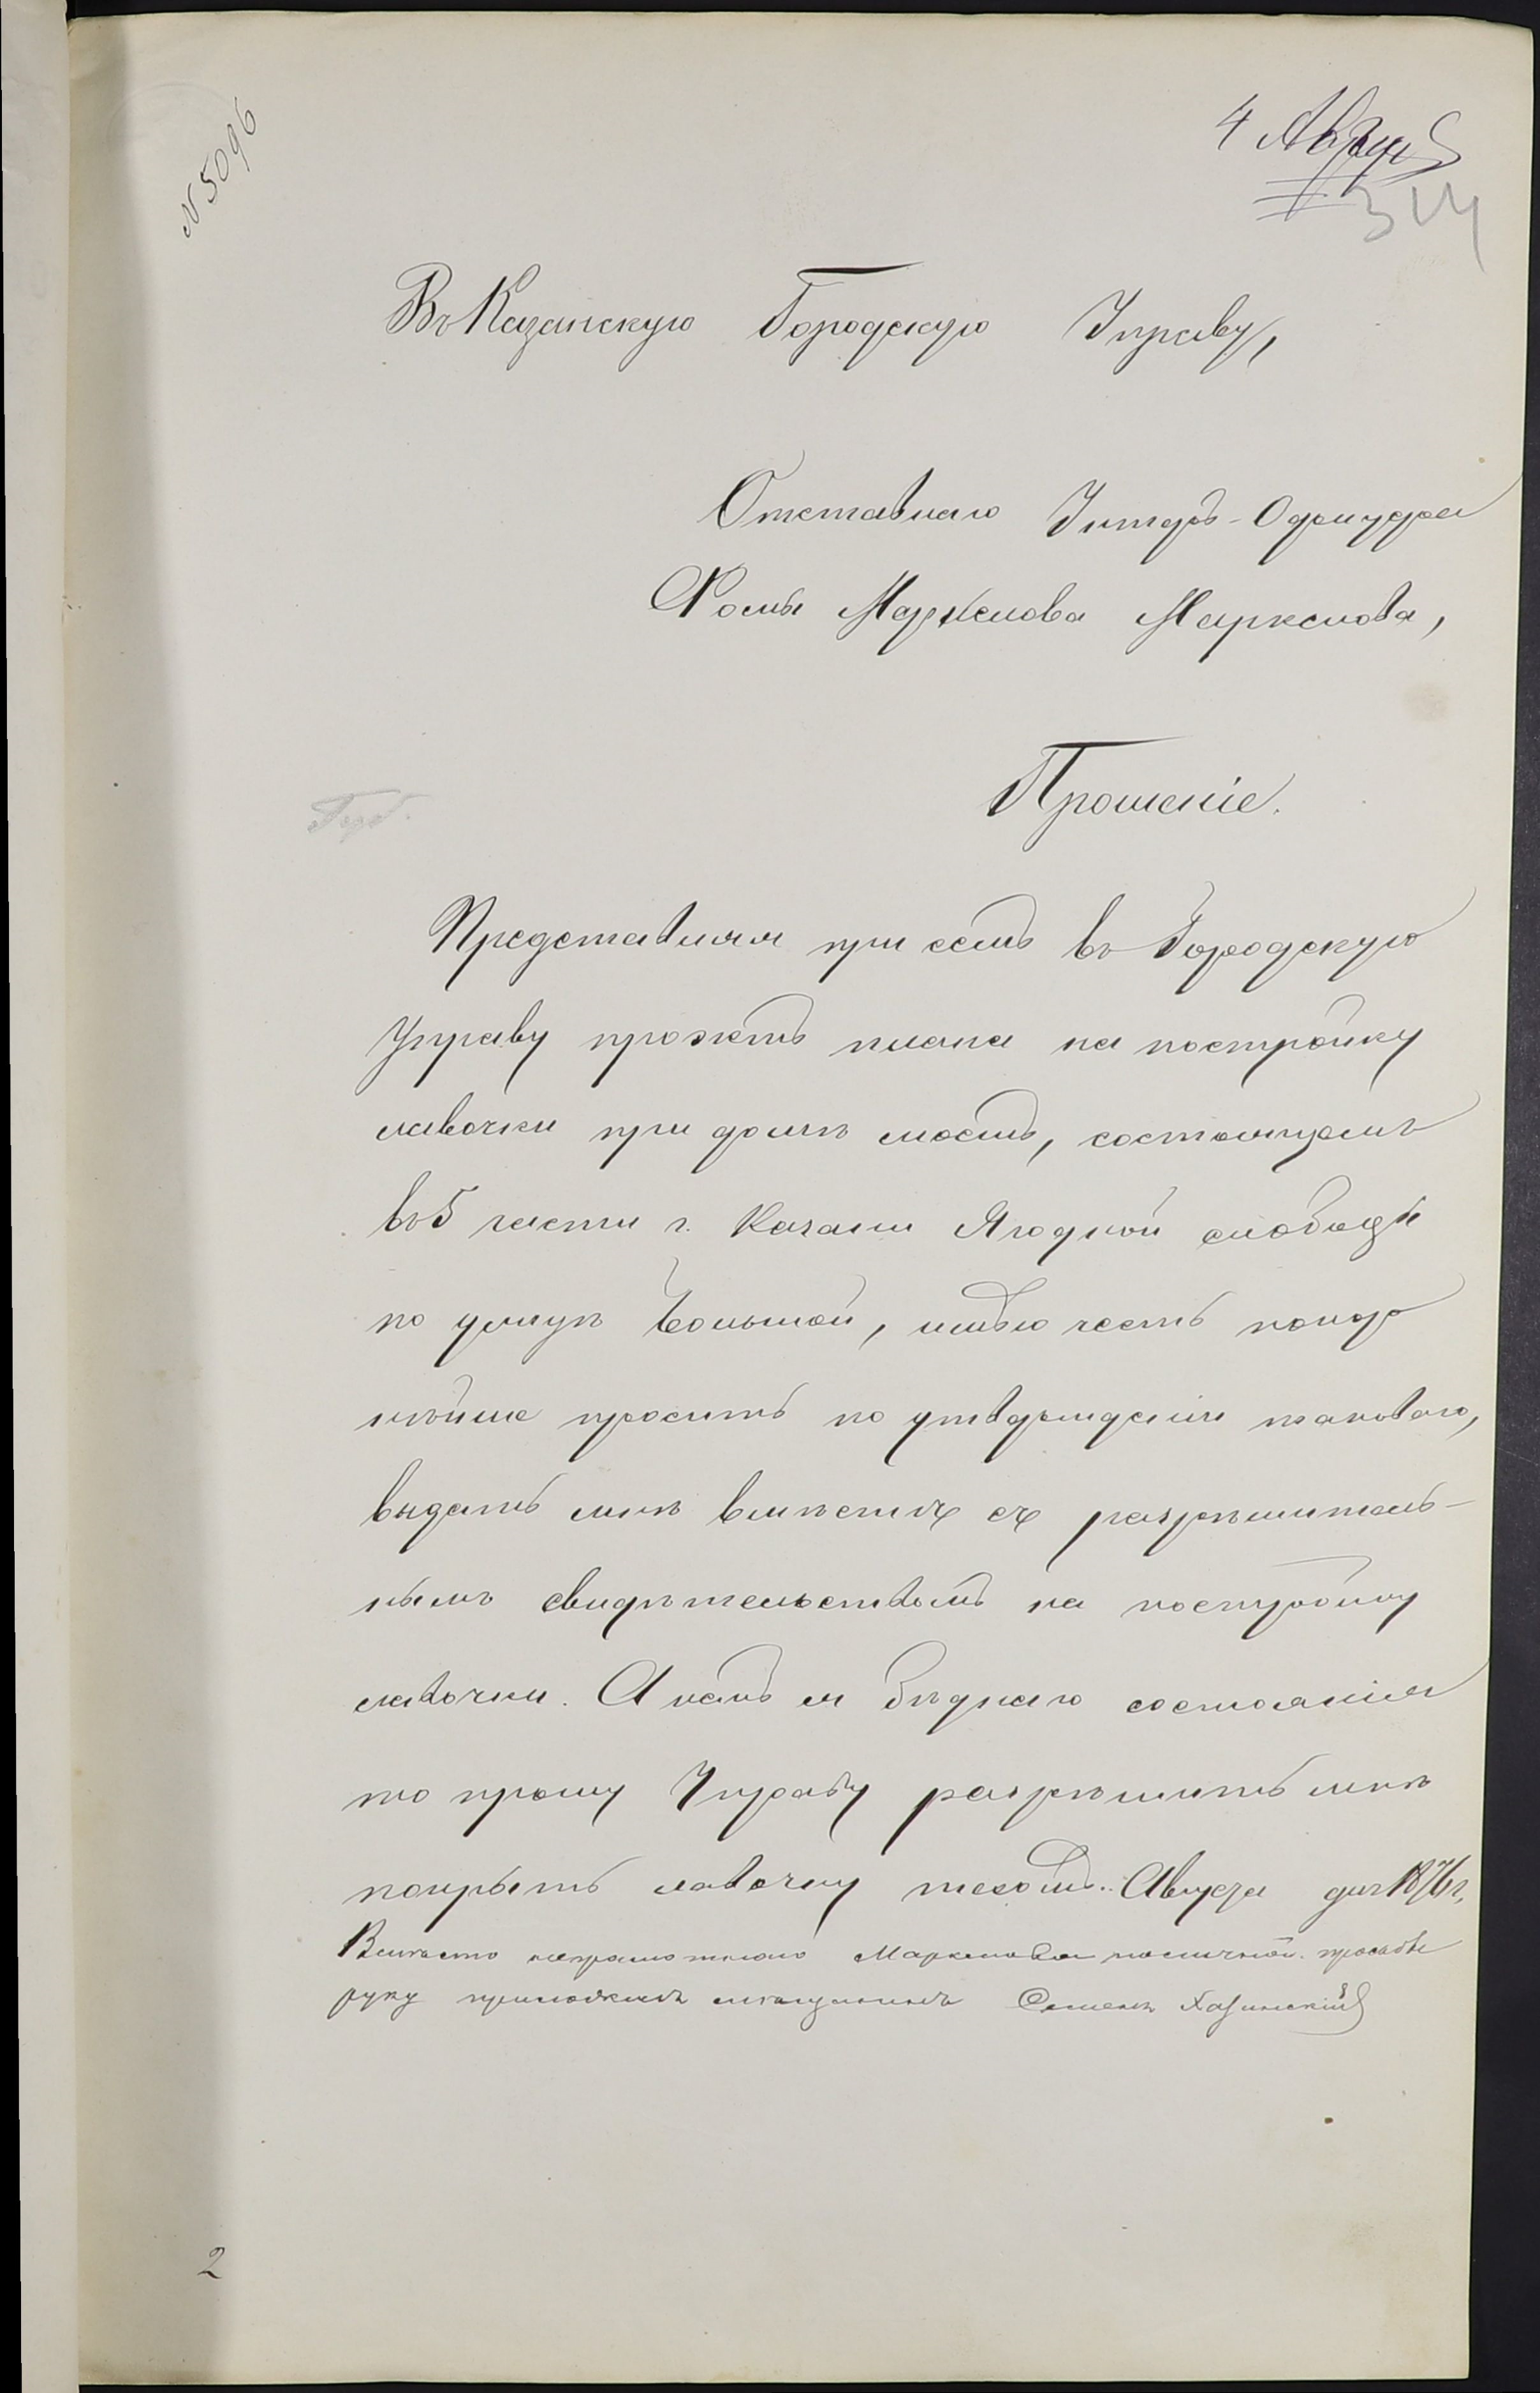 N 5096
4 Авгус
314
Въ Казанскую Городскую Управу,
Отставнаго Унтеръ-Офицера
Фомы Маркелова Маркелова,
Прошеніе.
Представляя при семъ въ Городскую
Управу проэктъ плана на постройку
лавочки при домѣ моемъ, состоящемъ
въ 5 части г. Казани Ягодной слободѣ
по улицѣ Большой, имѣю честь покор
нѣйше просить по утвержденіи таковаго,
выдать мнѣ вмѣстѣ съ разрѣшитель-
нымъ свидѣтельствомъ на постройку
лавочки. А какъ я бѣднаго состоянія
то прошу Управу разрѣшить мнѣ
покрыть лавочку тесомъ. Августа дня 1876 г.
Вмѣсто неграмотнаго Маркелова по личной просьбѣ
руку приложилъ мѣщанинъ Семенъ
2